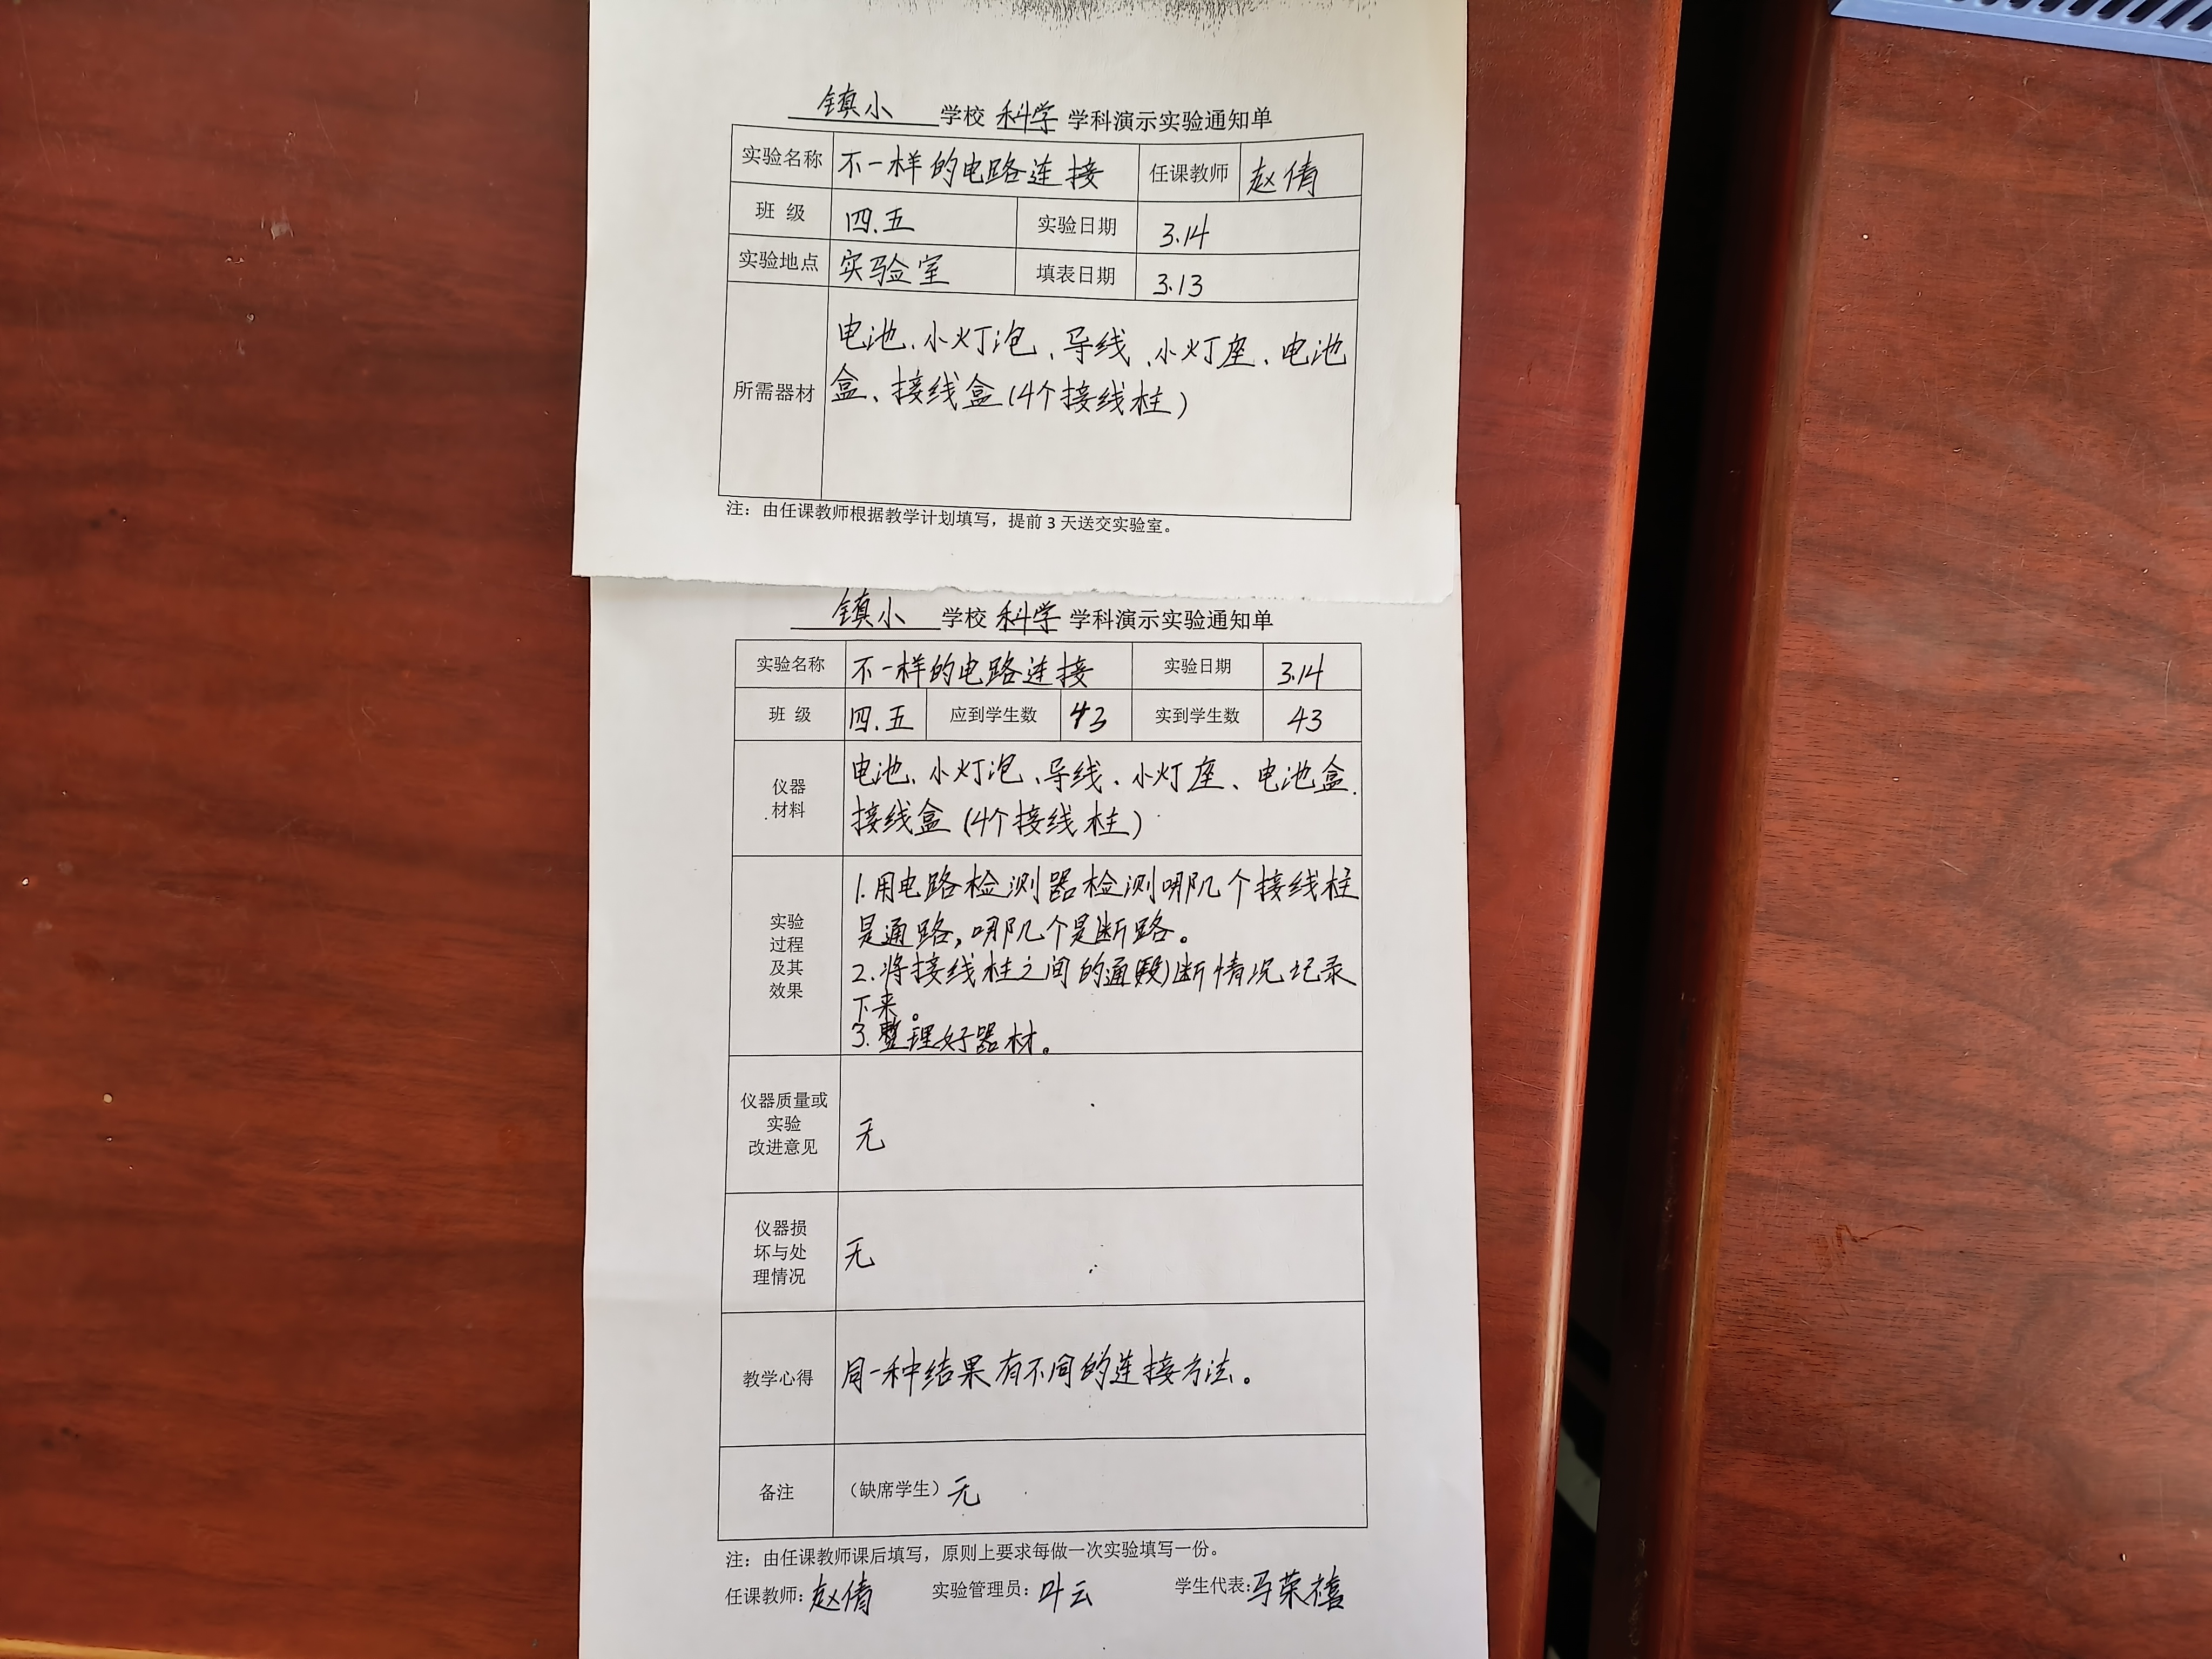 镇小 学校 科学 学科演示实验通知单
实验名称 不一样的电路连接 任课教师 赵倩
班 级 四.五 实验日期 3.14
实验地点 实验室 填表日期 3.13
所需器材 电池、小灯泡、导线、小灯座、电池
盒、接线盒(4个接线柱)
注：由任课教师根据教学计划填写，提前 3 天送交实验室。
镇小 学校 科学 学科演示实验通知单
实验名称 不一样的电路连接 实验日期 3.14
班 级 四.五 应到学生数 43 实到学生数 43
仪器
材料
电池、小灯泡、导线、小灯座、电池盒、
接线盒(4个接线柱)
实验
过程
及其
效果
1.用电路检测器检测哪几个接线柱
是通路，哪几个是断路。
2.将接线柱之间的通断情况记录
下来。
3.整理好器材。
仪器质量或
实验
改进意见
无
仪器损
坏与处
理情况
无
教学心得 同一种结果有不同的连接方法。
备注 （缺席学生）无
注：由任课教师课后填写，原则上要求每做一次实验填写一份。
任课教师：赵倩 实验管理员：叶云 学生代表：马荣禧